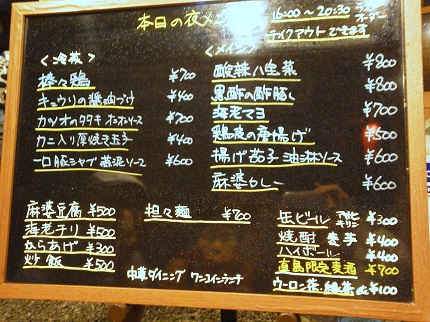 本日の夜メニュー 16:00〜20:30 ラストオーダー
テイクアウトできます
<冷菜>
棒々鶏 ¥700
キュウリの醤油づけ ¥400
カツオのタタキ ポンポンソース ¥700
カニ入り厚焼き玉子 ¥400
一口豚シャブ 蒸泥ソース ¥600
<メイン>
酸辣八宝菜 ¥800
黒酢の酢豚 ¥800
海老マヨ ¥700
鶏皮の唐揚げ ¥500
揚げ茄子 油淋ソース ¥600
麻婆カレー ¥600
麻婆豆腐 ¥500
海老チリ ¥500
からあげ ¥300
炒飯 ¥500
担々麺 ¥700
中華ダイニング ワンコインランチ
缶ビール アサヒ キリン ¥300
焼酎 麦 芋 ¥400
ハイボール ¥400
直島限定麦酒 ¥700
ウーロン茶 緑茶 etc ¥100